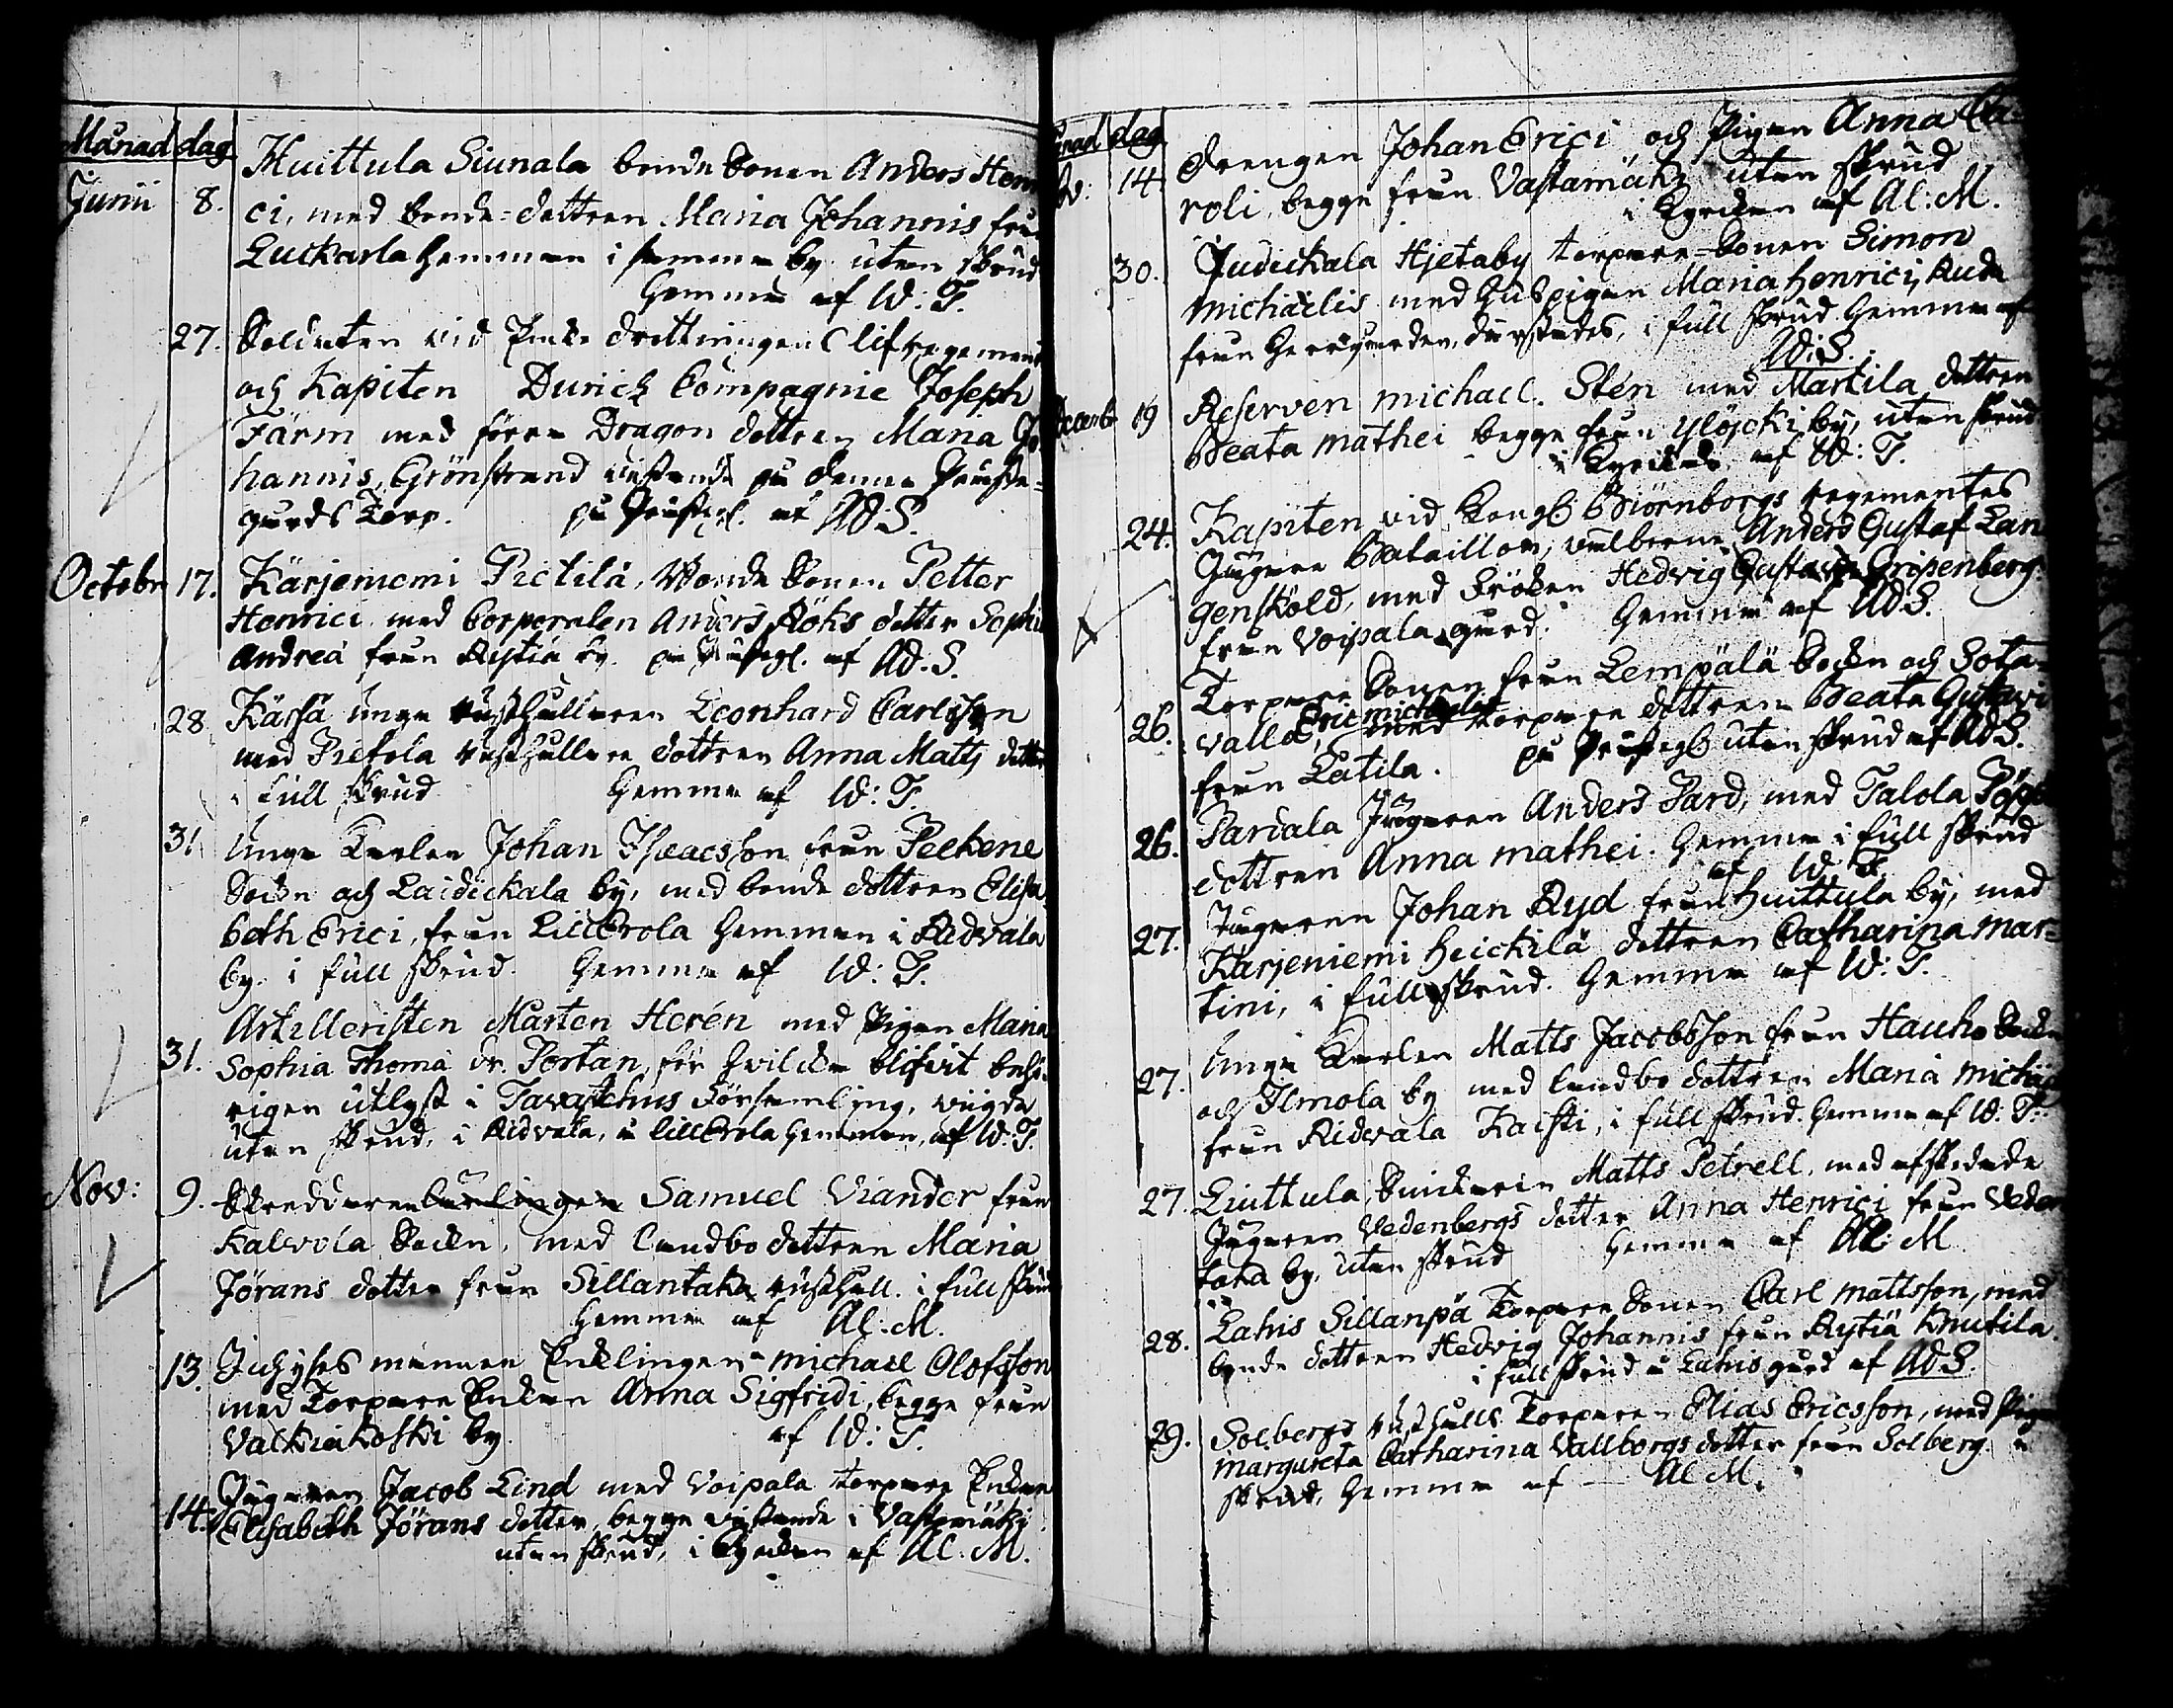 Månad dag
Junii 8. Huittula Siunala bonde Sonen Anders Hen
ci, med bonde=dottren Maria Johannis från
Luckarla hemman i samma by utan skrud
Hemma af W: T.
27. Soldaten vid Enke drottningens lifregement
och Kapiten Durietz Compagnie Joseph
Färm med förra Dragon dottren Maria Jo
hannis, Grönstrand vistande på denna Prästa=
gårds Torp. på Prästeg. af Ad: S.
Octobr 17. Kärjeniemi Pietilä, Bonde Sonen Petter
Henrici med Corporalen Anders Röks dotter Sophia
Andreä från Rytiä by. på Prästegl. af Ad. S.
28. Kärsä unge rusthållaren Leonhard Carlsson
med Prefola rusthållare dottren Anna Matts dotter
i full skrud Hemma af W: T.
31. Unge Karlen Johan Isaacsson från Peelkene
Sockn och Laidickala by, med bonde dottren Elisa
beth Erici, från Lillerola Hemman i Ridvala
by. i full skrud. Hemma af W: T.
31. Artilleristen Mårten Herén med Pigan Maria
Sophia Thomä dr. Portan, för hvilcka blifvit behö-
rigen utlyst i Tavastehus Församling, vigde
utan skrud, i Ridvala, å Lillerola Hemman, af W. T.
Nov: 9. Skreddaren Samuel Viander från
Kalvola Sockn, med landbo dottren Maria
Jörans dotter från Sillantaka rusthåll. i full skrud
Hemma af Al. M.
13. Inhyses mannen Enklingen michael Olofsson
med Torpare Enkan Anna Sigfridi, begge från
Valkiakoski by af W: T.
14. Jägaren Jacob Lind med Voipala torpare Enkan
Elisabeth Jörans dotter, begge vistande i Vastamäki
utan skrud, i Kyrckan af Al. M.
nad dag
ov: 14. Drengen Johan Erici och Pigan Anna Ca=
roli, begge från Vastamäki utan skrud
i Kyrckan af Al: M.
30. Judickala Hjetaby torpare=Sonen Simon
Michaelis med huspigan Maria Henrici, Ruda
från Herrgården, därstädes, i full skrud Hemma af
Ad: S.
Decembr 19 Reserven michael. Stén med Martila dottren
Beata mathei begge från Ylöjocki by, utan skrud
i Kyrckan af W: T.
24. Kapiten vid Kongl Biörnborgs regementes
Jägare Bataillon, välborne Anders Gustaf Lan
genskold, med Fröken Hedvig Gustava Gripenberg
från Voipala gård. Hemma af Ad S.
26. Torpare Sonen från Lempälä Sockn och Sota=
valla Eric michaelis med torpare dottren Beata Gustavi
från Catila. på Prästegl utan skrud af Ad S.
26. Pardala Jägaren Anders Pard, med Talola
dottren Anna mathei. Hemma i full skrud
af W. T.
27. Jägaren Johan Ryd från Huittula by, med
Kärjeniemi Heickilä dottren Catharina mar=
tini, i full skrud. Hemma af W: T.
27. Unge Karlen Matts Jacobsson från Hauho Sockn
och Ilmola by med landbo dottren Maria michae
från Ridvala Kaisti, i full skrud. Hemma af W. T.
27. Liuttula, Snickaren Matts Petrell, med afskedade
Jägaren Vedenbergs dotter Anna Henrici från Veden
taka by, utan skrud Hemma af Al: M
28. Lahis Sillanpä Torpare Sonen Carl mattsson, med
bonde dottren Hedvig Johannis från Rytiä Knutila.
i full skrud å Lahis gård af Ad S.
29. Solbergs rusthålls Torparen Elias Ericsson, med Pigan
margareta Catharina Vallborgs dotter från Solberg. u
skrud, Hemma af — Al M.